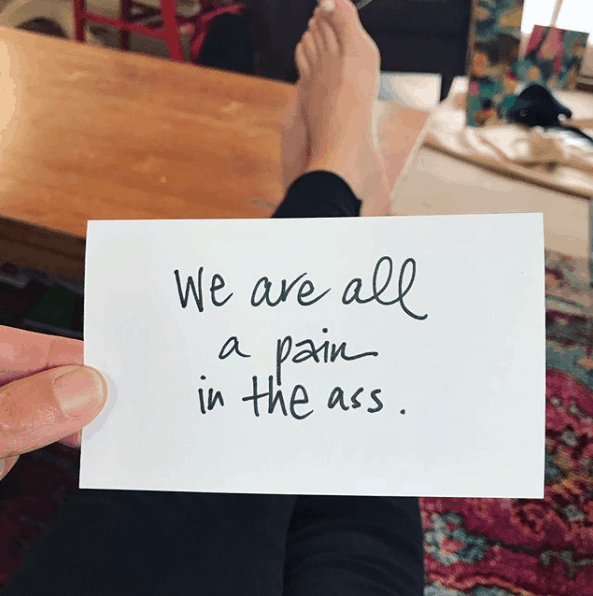 We are all
a pain
in the ass.